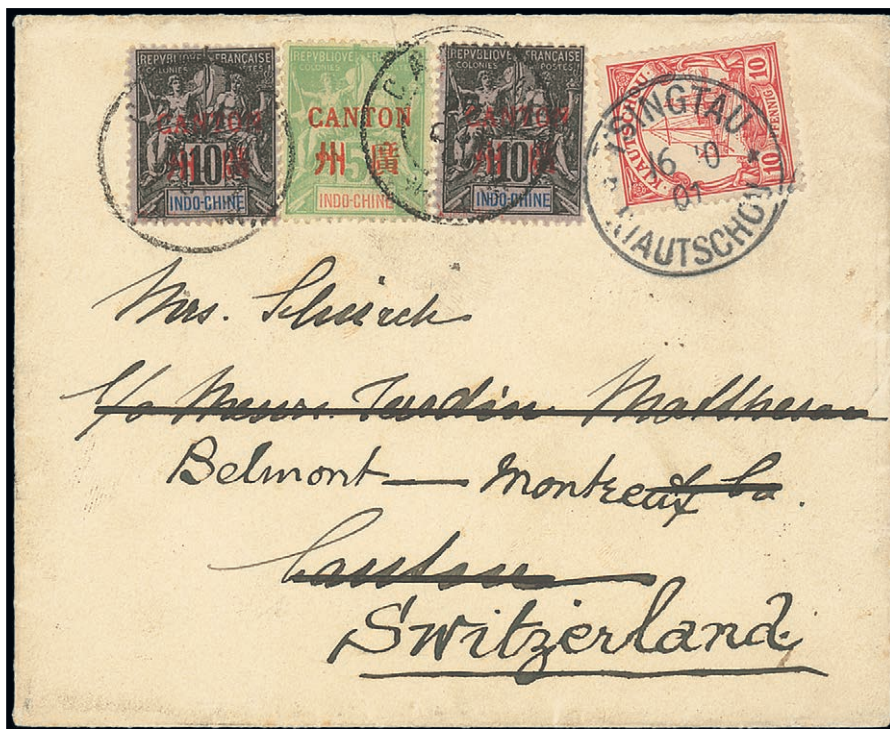 REPVBLIQVE FRANÇAISE
COLONIES POSTES
CANTON
州 廣
10
INDO-CHINE
REPVBLIQVE FRANÇAISE
COLONIES
CANTON
州 廣
5
INDO-CHINE
REPVBLIQVE FRANÇAISE
COLONIES POSTES
CANTON
州 廣
10
INDO-CHINE
KIAUTSCHOU
10 PFENNIG 10
TSINGTAU
16 10
01
KIAUTSCHOU
Mrs. Schürch
c/o Messrs. Jardine Matheson
Belmont — Montreux Co.
Canton
Switzerland.